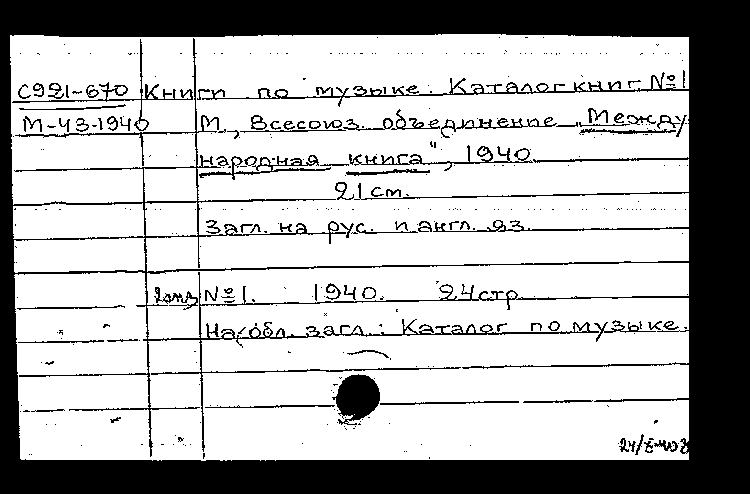 С921-670 Книги по музыке. Каталог книг. №1
М-43-1940 М., Всесоюз. объединение „Между-
народная книга", 1940
21 см.
Загл. на рус. и англ. яз.
2 экз №1. 1940. 24 стр
На обл. загл.: Каталог по музыке.